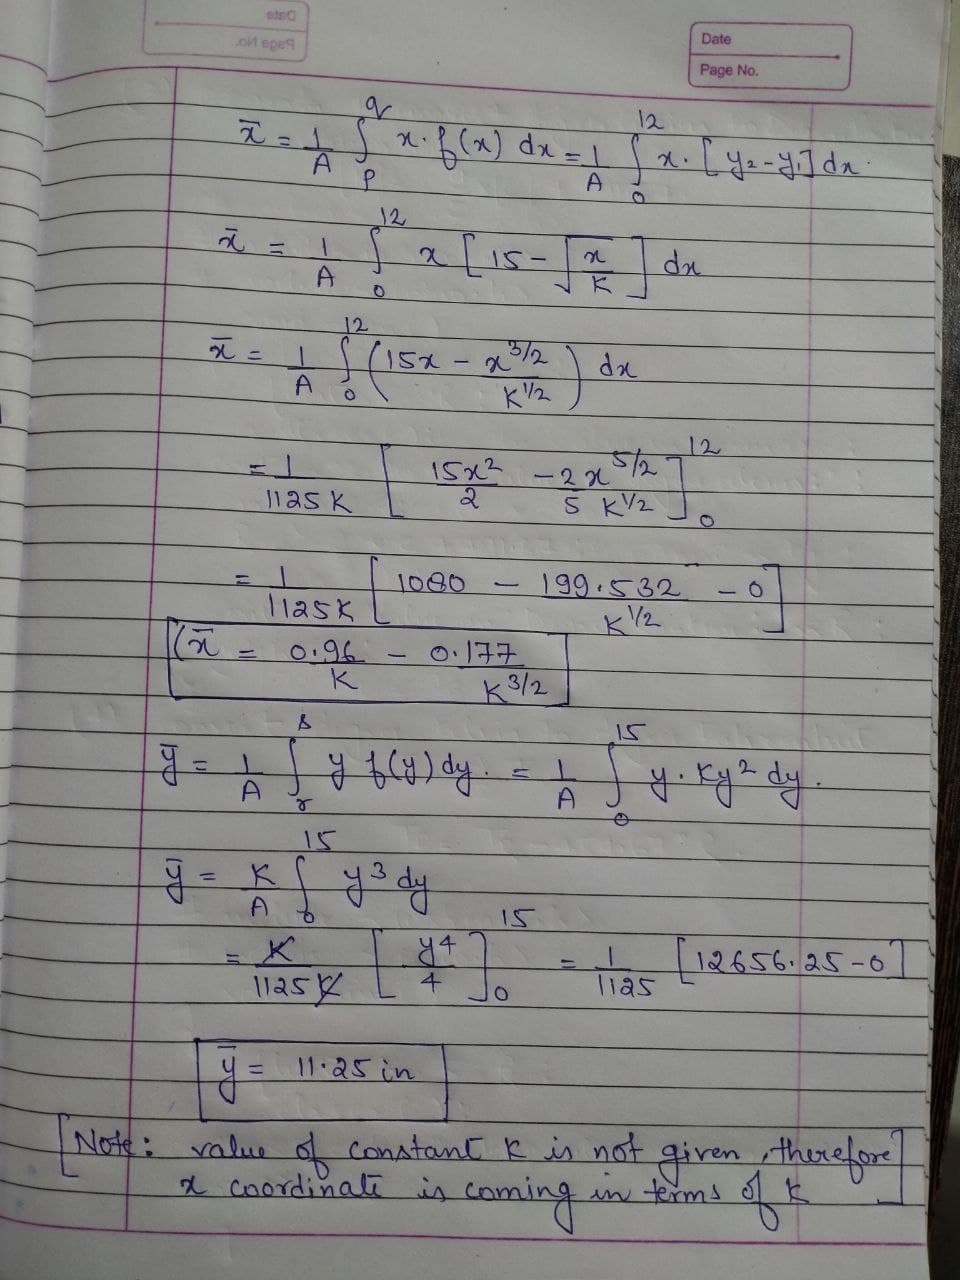 Date
Page No.
Date
Page No.
x̄ = 1/A ∫_p^q x · f(x) dx = 1/A ∫_0^12 x · [y₂ - y₁] dx
x̄ = 1/A ∫_0^12 x [15 - √(x/K)] dx
x̄ = 1/A ∫_0^12 (15x - x^(3/2)/K^(1/2)) dx
= 1/1125K [15x²/2 - 2x^(5/2)/5K^(1/2)]_0^12
= 1/1125K [1080 - 199.532/K^(1/2) - 0]
(x̄ = 0.96/K - 0.177/K^(3/2)
ȳ = 1/A ∫_r^s y f(y) dy. = 1/A ∫_0^15 y · Ky² dy.
ȳ = K/A ∫_0^15 y³ dy
= K/1125K [y⁴/4]_0^15 = 1/1125 [12656.25 - 0]
ȳ = 11.25 in
[Note: value of constant K is not given, therefore
x coordinate is coming in terms of K]